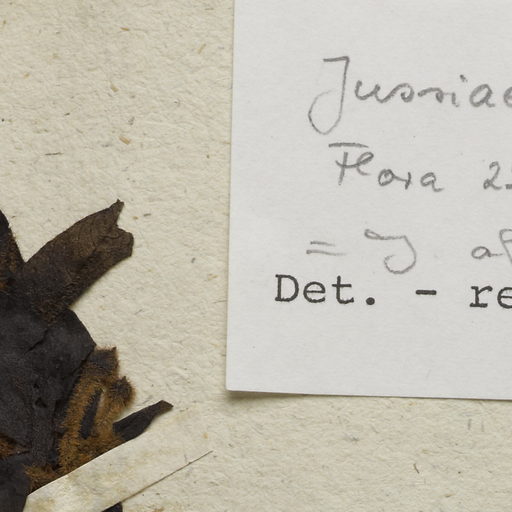 Jussiae
Flora 22
= J. af
Det. - re